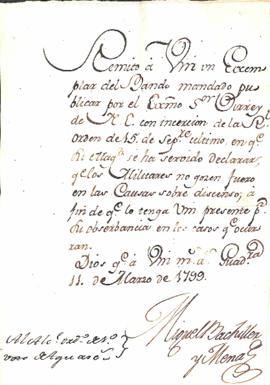 Remito à Vm un Exem-
plar del Bando mandado pu-
blicar por el Exmo Sor Virrey
de N. E. con incercion de la Rl
orden de 15. de Sepre ultimo, en qe
Su Magd se ha servido declarar,
qe los Militares no gozen fuero
en las Causas sobre disenso; à
fin de qe lo tenga Vm presente pa
su observancia en los casos qe ocur-
ran.
Dios ge à Vm ms as Guadxa
11. de Marzo de 1799.
Miguel Bachiller
y Mena
Al Alce ordo de